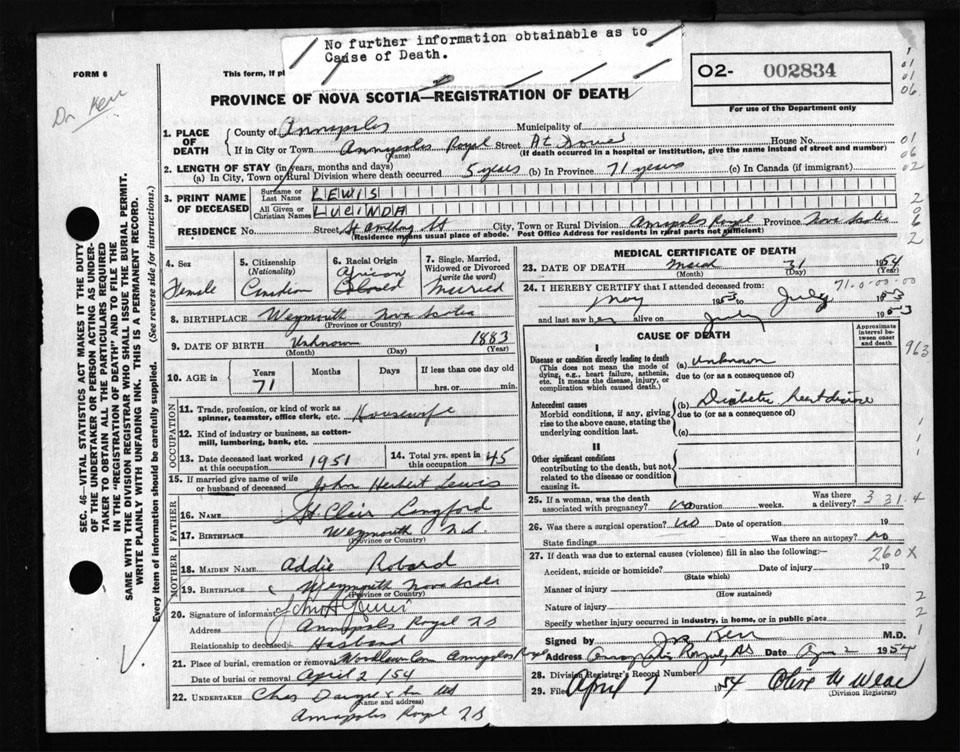 No further information obtainable as to
Cause of Death.
FORM 6
This form, if
02- 002834
For use of the Department only
Dr. Kerr
PROVINCE OF NOVA SCOTIA—REGISTRATION OF DEATH
1. PLACE OF DEATH
County of Annapolis Municipality of
If in City or Town Annapolis Royal Street House No.
(Name) (If death occurred in a hospital or institution, give the name instead of street and number)
2. LENGTH OF STAY (in years, months and days)
(a) In City, Town or Rural Division where death occurred 5 years (b) In Province 71 years (c) In Canada (if immigrant)
3. PRINT NAME OF DECEASED
Surname or Last Name LEWIS
All Given or Christian Names LUCINDA
RESIDENCE No. Street St Anthony St City, Town or Rural Division Annapolis Royal Province Nova Scotia
(Residence means usual place of abode. Post Office Address for residents in rural parts not sufficient)
SEC. 46—VITAL STATISTICS ACT MAKES IT THE DUTY
OF THE UNDERTAKER OR PERSON ACTING AS UNDER-
TAKER TO OBTAIN ALL THE PARTICULARS REQUIRED
IN THE "REGISTRATION OF DEATH" AND TO FILE THE
SAME WITH THE DIVISION REGISTRAR WHO SHALL ISSUE THE BURIAL PERMIT.
WRITE PLAINLY WITH UNFADING INK. THIS IS A PERMANENT RECORD.
Every item of information should be carefully supplied. (See reverse side for instructions.)
4. Sex
Female
5. Citizenship
(Nationality)
Canadian
6. Racial Origin
African
Colored
7. Single, Married,
Widowed or Divorced
(write the word)
Married
8. BIRTHPLACE Weymouth Nova Scotia
(Province or Country)
9. DATE OF BIRTH Unknown 1883
(Month) (Day) (Year)
10. AGE in Years Months Days If less than one day old
71 hrs. or min.
OCCUPATION
11. Trade, profession, or kind of work as
spinner, teamster, office clerk, etc. Housewife
12. Kind of industry or business, as cotton-
mill, lumbering, bank, etc.
13. Date deceased last worked
at this occupation 1951
14. Total yrs. spent in
this occupation 45
15. If married give name of wife
or husband of deceased John Herbert Lewis
FATHER
16. Name St Clair Langford
17. Birthplace Weymouth N.S.
(Province or Country)
MOTHER
18. MAIDEN NAME Addie Robard
19. BIRTHPLACE Weymouth Nova Scotia
(Province or Country)
20. Signature of informant John H Lewis
Address Annapolis Royal NS
Relationship to deceased Husband
21. Place of burial, cremation or removal Woodlawn Cem Annapolis Royal
Date of burial or removal April 2/54
22. UNDERTAKER Chas
(Name and address)
Annapolis Royal NS
MEDICAL CERTIFICATE OF DEATH
23. DATE OF DEATH March 31 1954
(Month) (Day) (Year)
71-0-00-00
24. I HEREBY CERTIFY that I attended deceased from:
May 1953 to July 1953
and last saw her alive on July 1953
CAUSE OF DEATH
Approximate
interval be-
tween onset
and death
I
Disease or condition directly leading to death
(This does not mean the mode of
dying, e.g., heart failure, asthenia,
etc. It means the disease, injury, or
complication which caused death.)
(a) Unknown
due to (or as a consequence of)
Antecedent causes
Morbid conditions, if any, giving
rise to the above cause, stating the
underlying condition last.
(b) Diabetic heart disease
due to (or as a consequence of)
(c)
II
Other significant conditions
contributing to the death, but not
related to the disease or condition
causing it.
25. If a woman, was the death
associated with pregnancy? no Duration weeks. Was there a delivery? 3 31.4
26. Was there a surgical operation? No Date of operation 19
State findings Was there an autopsy? no
27. If death was due to external causes (violence) fill in also the following:— 260X
Accident, suicide or homicide? Date of injury 19
(State which)
Manner of injury
(How sustained)
Nature of injury
Specify whether injury occurred in industry, in home, or in public place
Signed by Kerr M.D.
Address Annapolis Royal, NS Date Apr 2 1954
28. Division Registrar's Record Number
29. Filed April 7 1954
(Division Registrar)
963